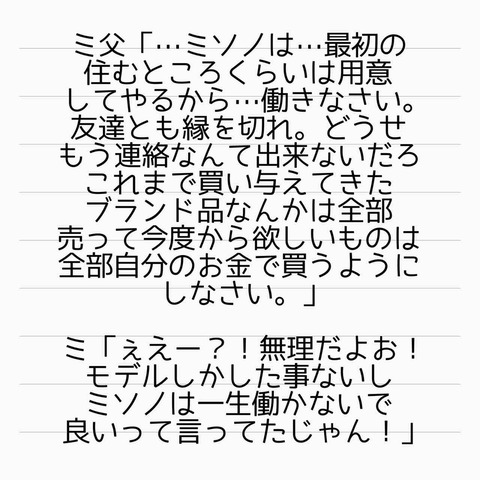 ミ父「…ミソノは…最初の
住むところくらいは用意
してやるから…働きなさい。
友達とも縁を切れ。どうせ
もう連絡なんて出来ないだろ
これまで買い与えてきた
ブランド品なんかは全部
売って今度から欲しいものは
全部自分のお金で買うように
しなさい。」
ミ「ぇえー？！無理だよお！
モデルしかした事ないし
ミソノは一生働かないで
良いって言ってたじゃん！」